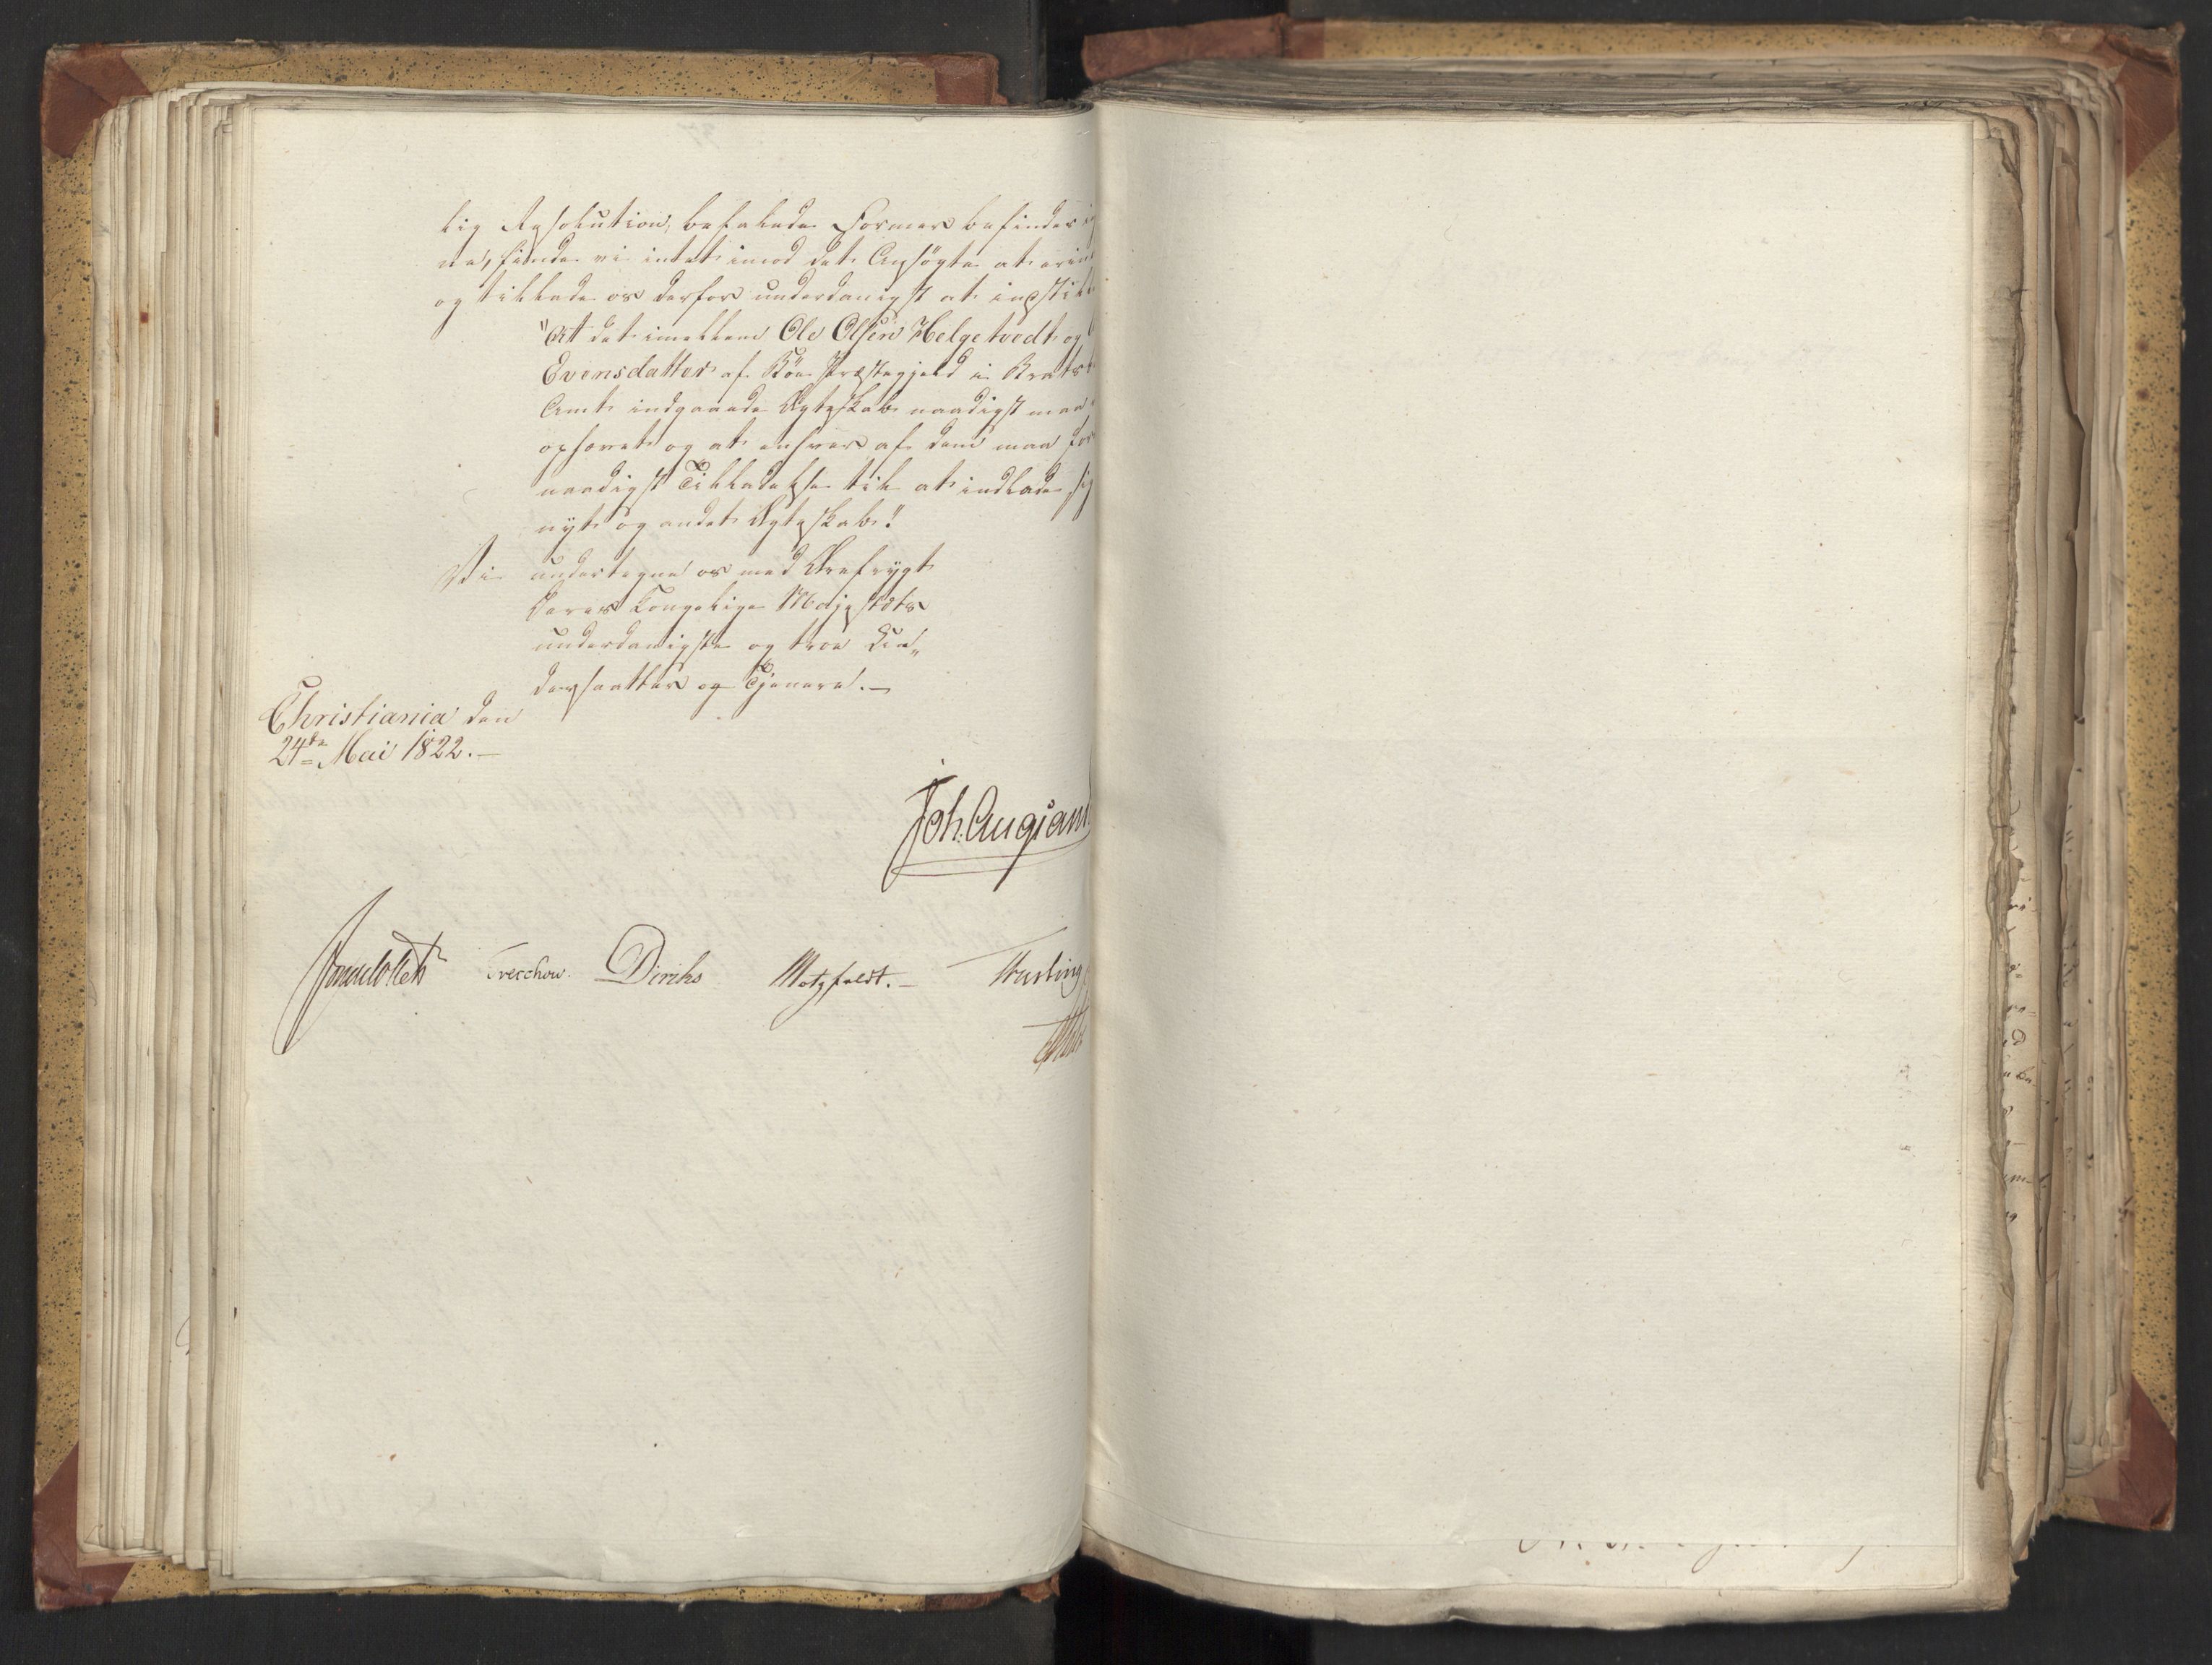 lig Resolution, befalede Former befinder
ne, finde vi intet imod det Ansögte at erin
og tillade os derfor underdanigst at indstil
"At det imellem Ole Olsen Helgetvedt og
Evensdatter af Böe Præstegjeld i Brats
Amt indgaaede Ægteskab naadigst maa
ophævet og at enhver af dem maa for
naadigst Tilladelse til at indlade sig
nyt og andet Ægteskab."
Vi undertegne os med Ærefrygt
Deres Kongelige Majestæts
underdanigste og troe Un„
dersaatter og Tjenere.—
Christiania den
24de Mai 1822.—
Joh. Aug Sand
Sommerhielm Treschow. Diriks Motzfeldt.— Fasting